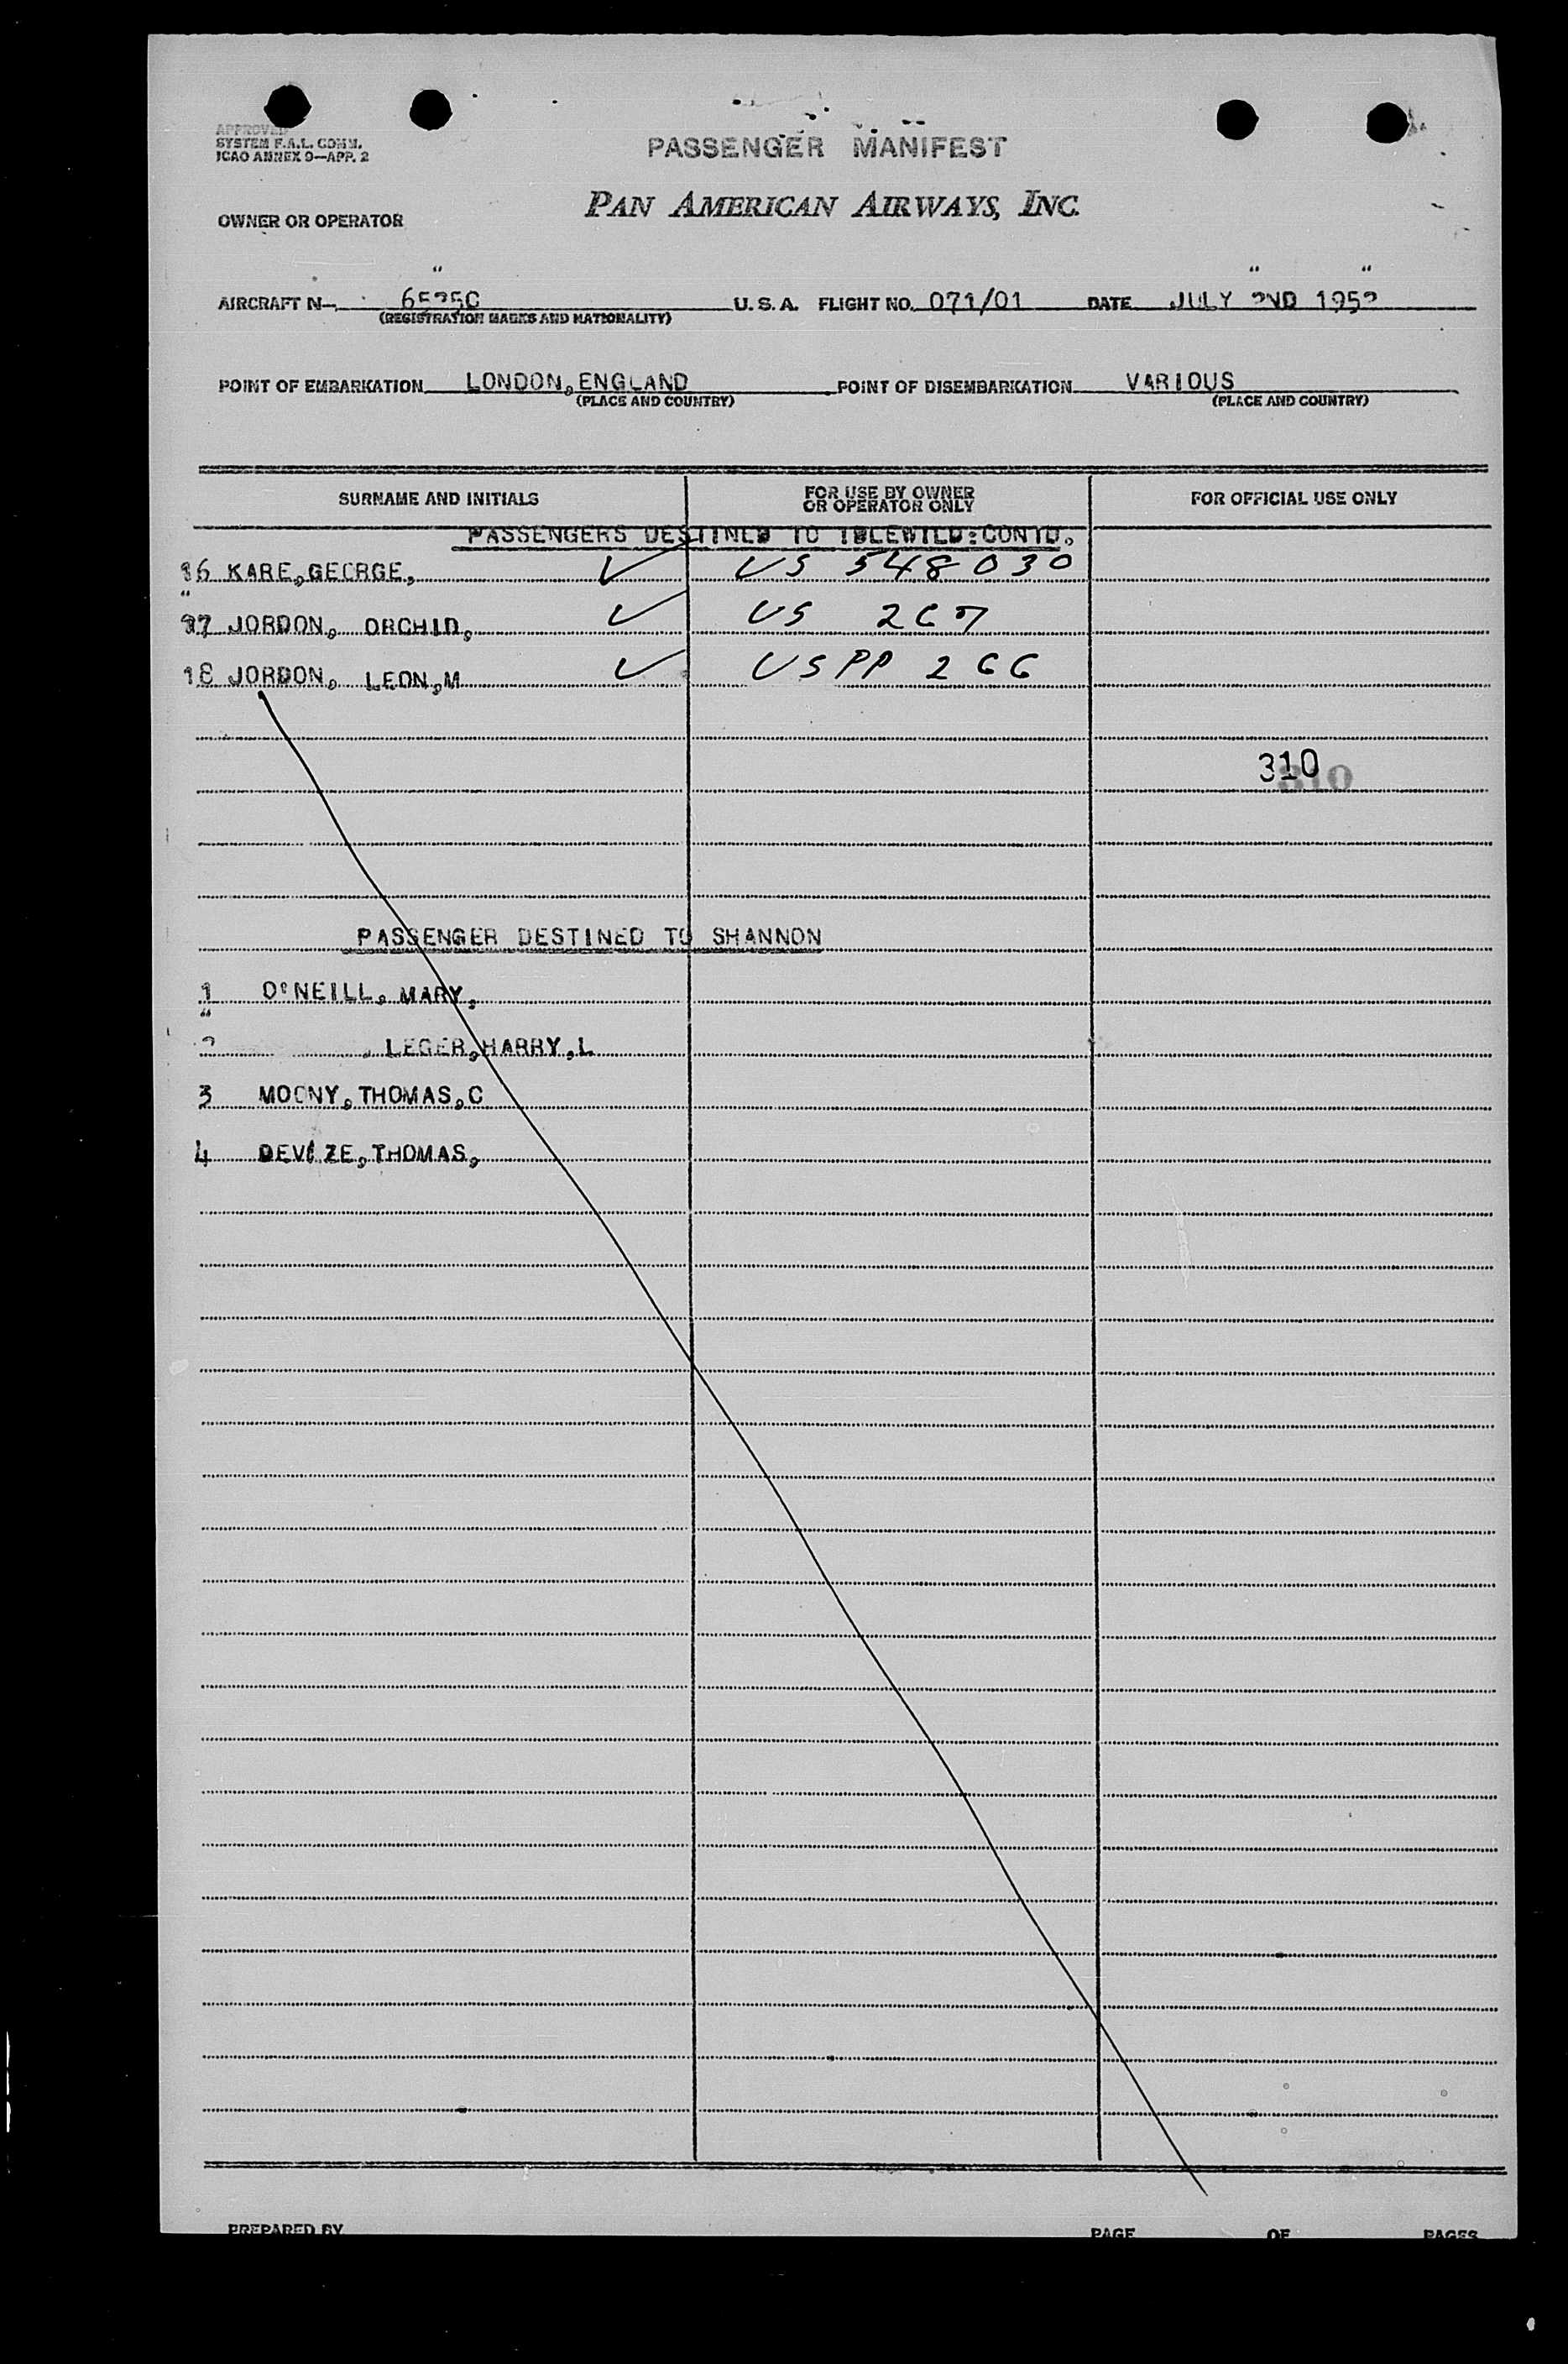 APPROVED
SYSTEM F.A.L. COMM.
ICAO ANNEX 9—APP. 2
PASSENGER MANIFEST
PAN AMERICAN AIRWAYS, INC.
OWNER OR OPERATOR
AIRCRAFT N— 6525C U. S. A. FLIGHT NO. 071/01 DATE JULY 2ND 1952
(REGISTRATION MARKS AND NATIONALITY)
POINT OF EMBARKATION LONDON, ENGLAND POINT OF DISEMBARKATION VARIOUS
(PLACE AND COUNTRY) (PLACE AND COUNTRY)
SURNAME AND INITIALS FOR USE BY OWNER OR OPERATOR ONLY FOR OFFICIAL USE ONLY
PASSENGERS DESTINED TO IDLEWILD:CONTD.
16 KARE,GEORGE, ✓ US 548030
17 JORDON, ORCHID, ✓ US 267
18 JORDON, LEON,M ✓ US PP 266
310
310
PASSENGER DESTINED TO SHANNON
1 O'NEILL, MARY,
2 LEGER,HARRY,L
3 MOONY,THOMAS,C
4 DEVIZE,THOMAS,
PREPARED BY PAGE OF PAGES